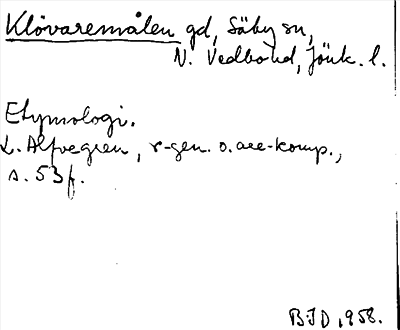 Klövaremålen gd, Säby sn,
N. Vedbo hd, Jönk. l.
Etymologi.
L. Alfvegren, r-gen. o. are-komp.,
s. 53 f.
BJD 1958.